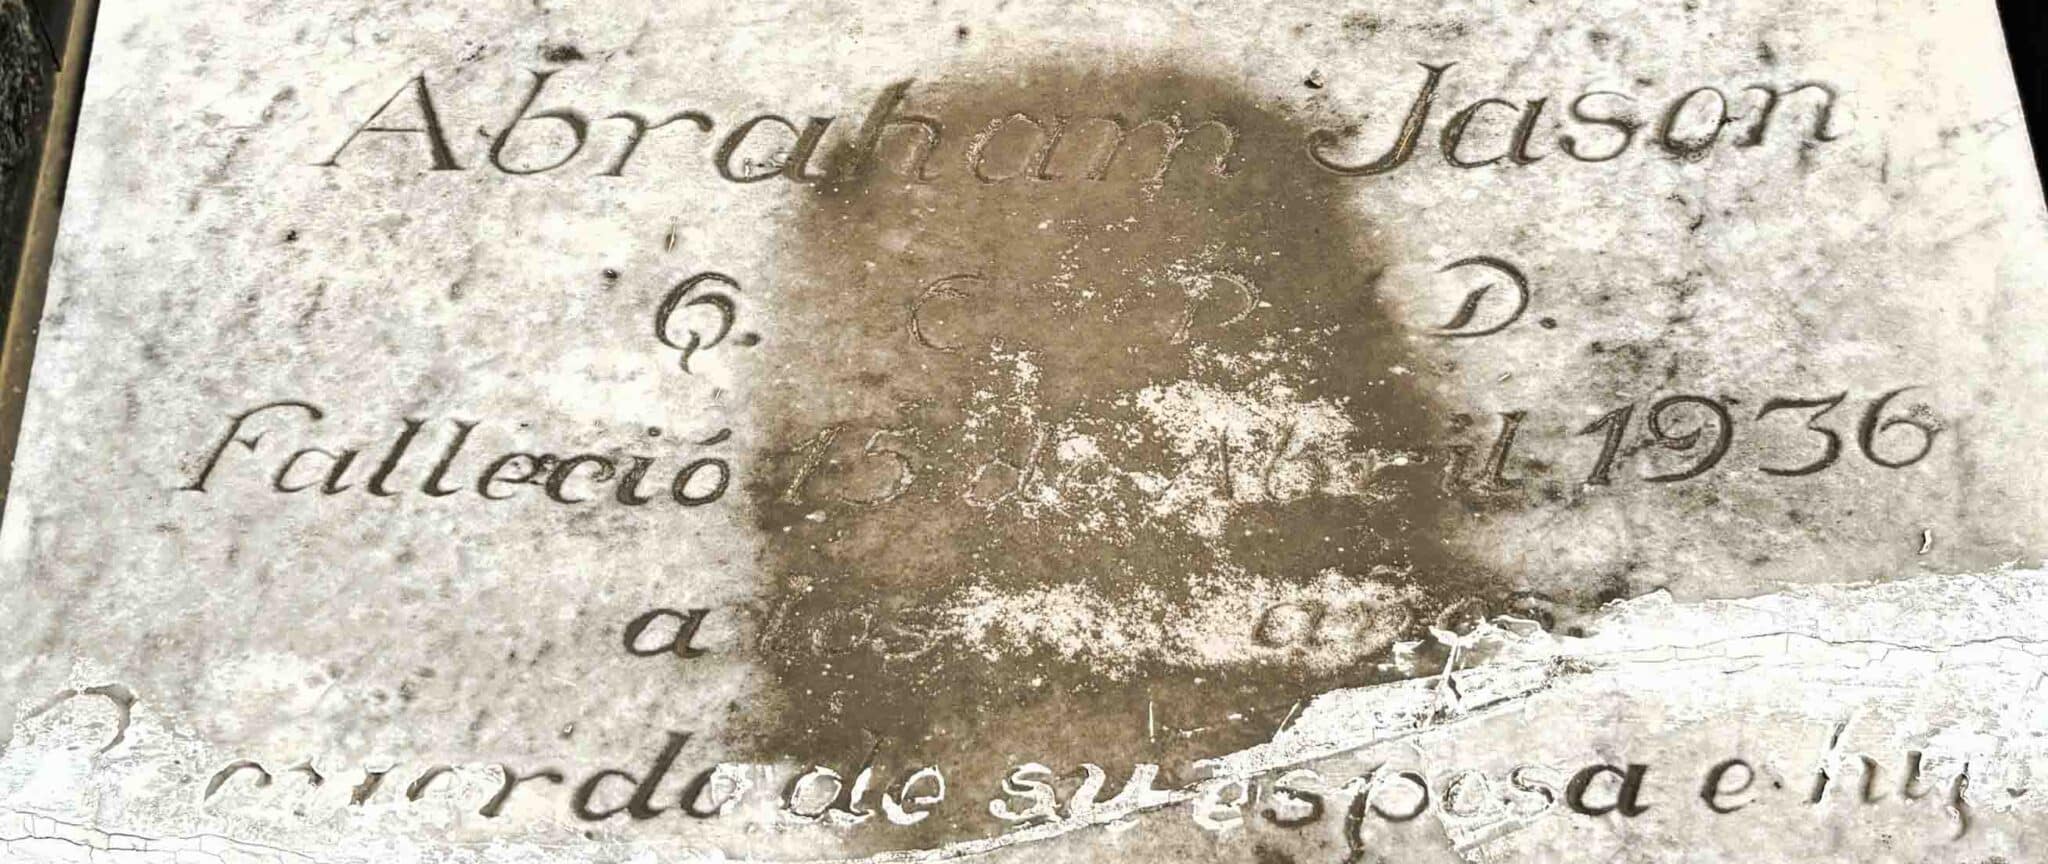 Abraham Jason
Q. C. P. D.
Falleció 15 de Abril 1936
a los años.
Recuerdo de su esposa e